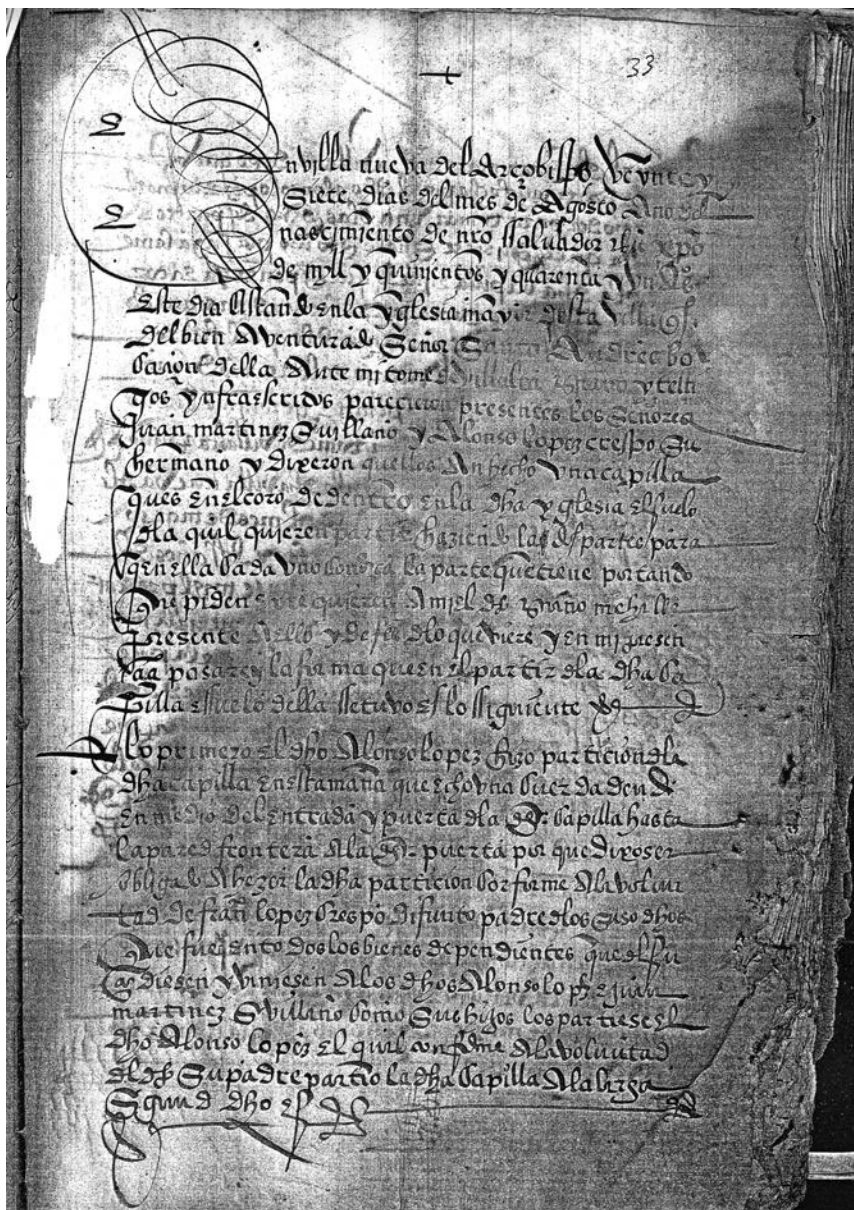 33
En villa nueva del Arçobispo Veynte y
Siete dias del mes de Agosto Año del
nascimiento de nro Salvador ihu xpõ
de myll y quinientos y quarenta y un
Este dia Estando en la yglesia mayor desta villa
del bien Aventurado Señor Santo Andres bo
cajon della Ante mi tome de villalta y testi
gos ynfraescritos parecieron presentes los Señores
Juan martinez Sivillano y Alonso lopez crespo Su
hermano y dixeron quellos An hecho una capilla
ques en el coro de dentro en la dha yglesia el suelo
dla qual quieren partir haziendo las partes para
q en ella Cada uno conozca la parte que tiene por tando
que piden y requieren A mi el dho
Presente A ello y de fee dlo que viere y en mi presen
cia pasare y la forma que en el partir dla dha Ca
Pilla el suelo della se tuvo es lo siguiente
lo primero el dho Alonso lopez hizo particion dla
dha capilla en esta maña que echo una Cuerda dende
En medio del entrada y puerta dla dha Capilla hasta
la pared frontera A la dha puerta por que dixo ser
obligado A hezer la dha particion Conforme A la volun
tad de fran lopez Crespo difunto padre dlos suso dhos
Que fue en todos los bienes dependientes que
diesen y viniesen A los dhos Alonso lopz e juan
martinez Sivillano Como Sus hijos los partiese el
dho Alonso lopez El qual conforme A la voluntad
del dho Su padre partio la dha Capilla A la larga
Segund dho es